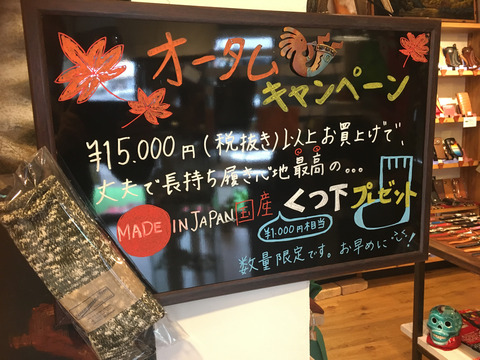 オータム
キャンペーン
¥15.000円(税抜き)以上お買上げで、
丈夫で長持ち履き心地最高の...
MADE IN JAPAN 国産 くつ下プレゼント
¥1.000円相当
数量限定です。お早めに!